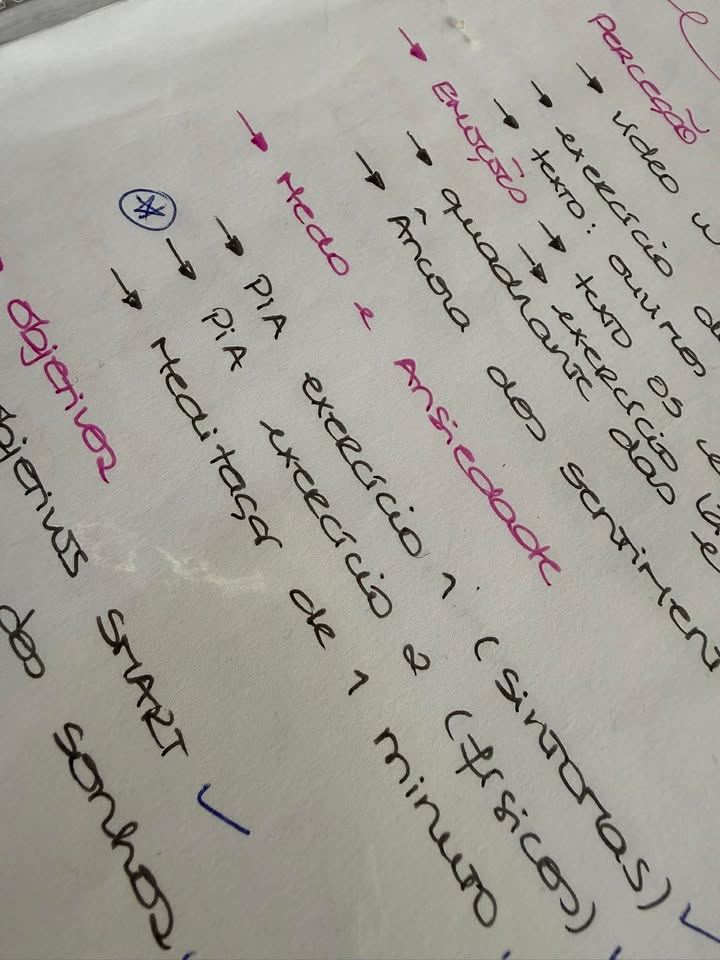 Perceção
→ vídeo
→ exercício
→ texto: ouvimos
→ Emoção → texto os
→ exercício
→ quadrante das
→ Âncora dos
→ Medo e Ansiedade
→ PIA exercício 1 (sintomas) ✓
→ PIA exercício 2 (físicos)
→ Meditação de 1 minuto
objetivos
objetivos SMART ✓
dos sonhos